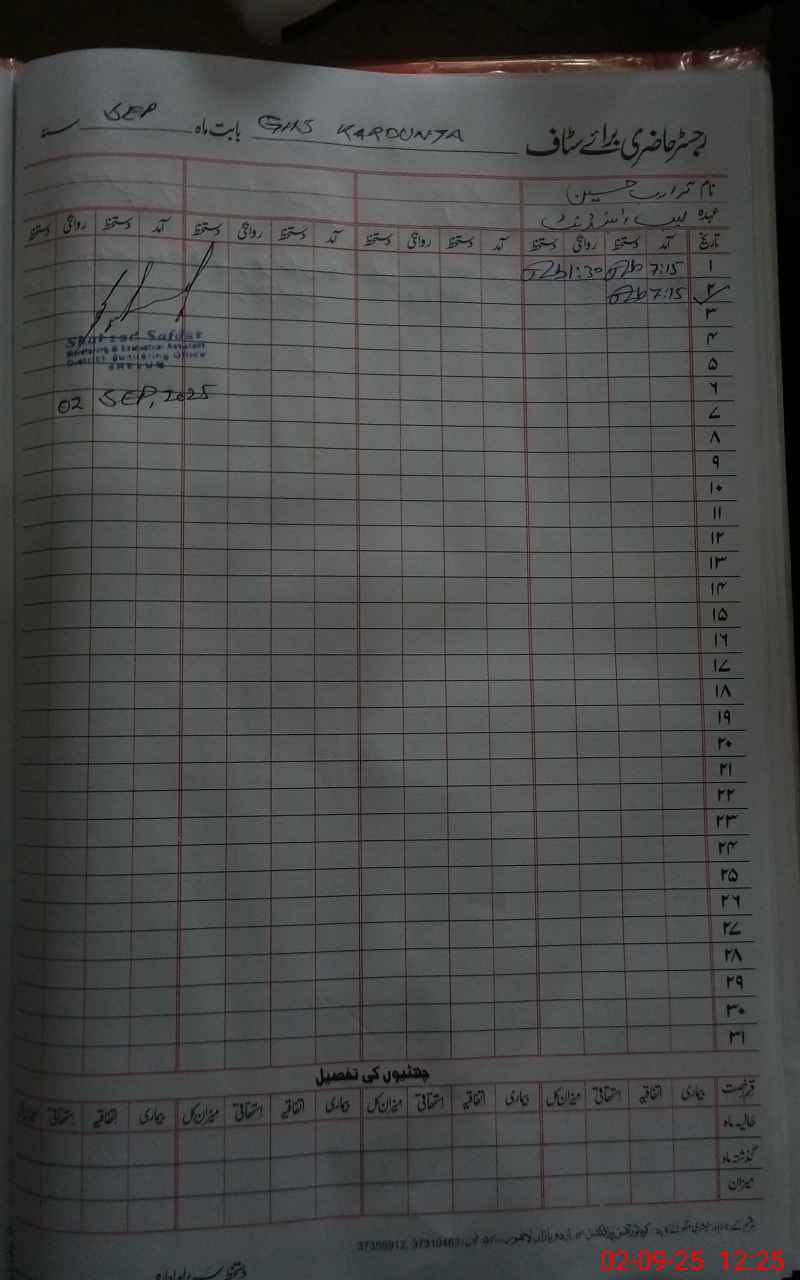 رجسٹر حاضری برائے سٹاف GHS KAROUNTA بابت ماہ SEP سنہ
نام کرار حسین
عہدہ لیب
تاریخ آمد دستخط روانگی دستخط آمد دستخط روانگی دستخط آمد دستخط روانگی دستخط آمد دستخط روانگی دستخط
۱ 7:15 1:30
۲ 7:15
۳
Shahzad Safdar
۴
Monitoring & Evaluation Assistant
District Monitoring Office
۵
JHELUM
۶
02 SEP, 2025
۷
۸
۹
۱۰
۱۱
۱۲
۱۳
۱۴
۱۵
۱۶
۱۷
۱۸
۱۹
۲۰
۲۱
۲۲
۲۳
۲۴
۲۵
۲۶
۲۷
۲۸
۲۹
۳۰
۳۱
چھٹیوں کی تفصیل
قسم رخصت بیماری اتفاقیہ استحقاقی میزان کل بیماری اتفاقیہ استحقاقی میزان کل بیماری اتفاقیہ استحقاقی میزان کل بیماری اتفاقیہ استحقاقی
حالیہ ماہ
گذشتہ ماہ
میزان
اردو بازار لاہور فون: 37310463, 37358912
02-09-25 12:25